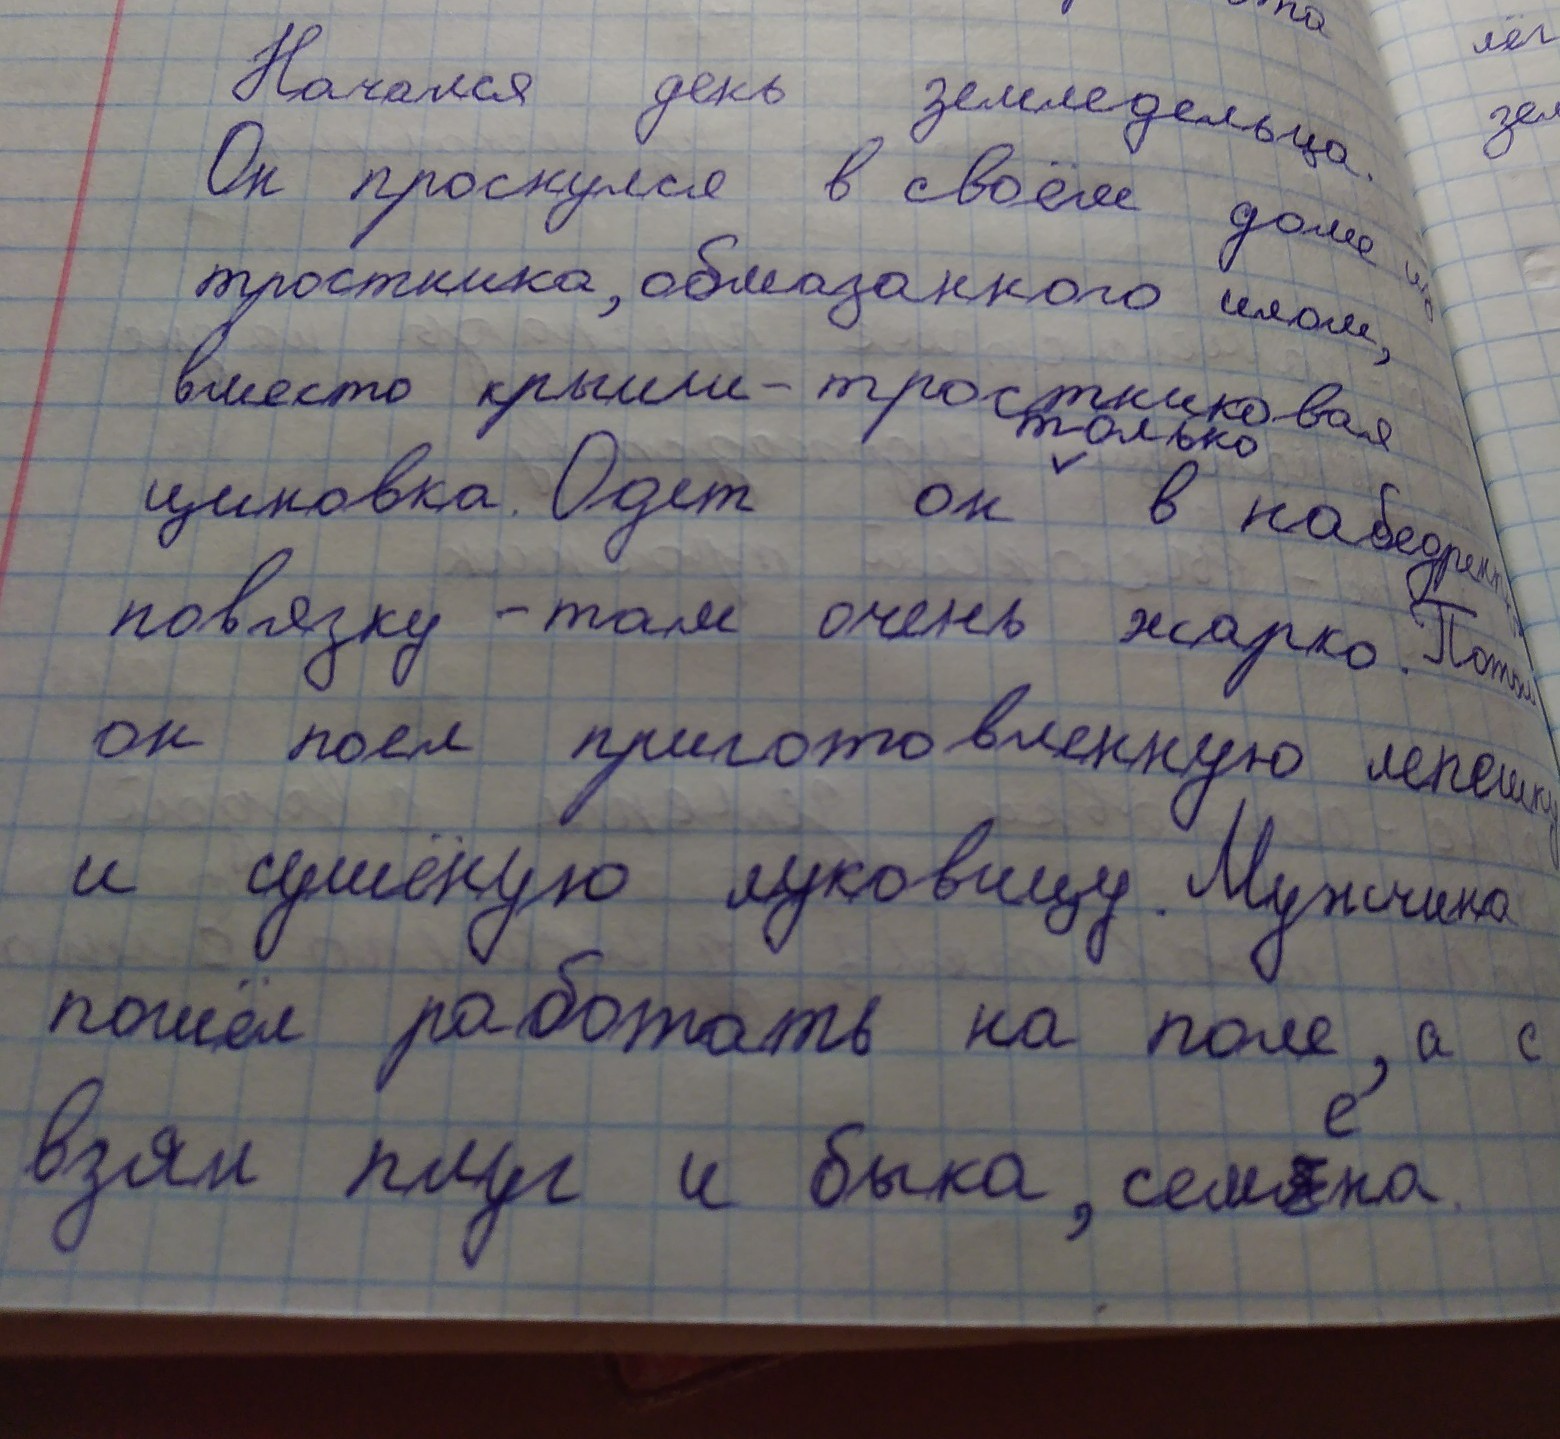 Начался день земледельца.
Он проснулся в своём доме из
тростника, обмазанного илом,
вместо крыши - тростниковая
только
циновка. Одет он в набедренн
повязку - там очень жарко. Потом
он поел приготовленную лепешку
и сушёную луковицу. Мужчина
пошёл работать на поле, а с
взял плуг и быка, семена.
лёг
зем